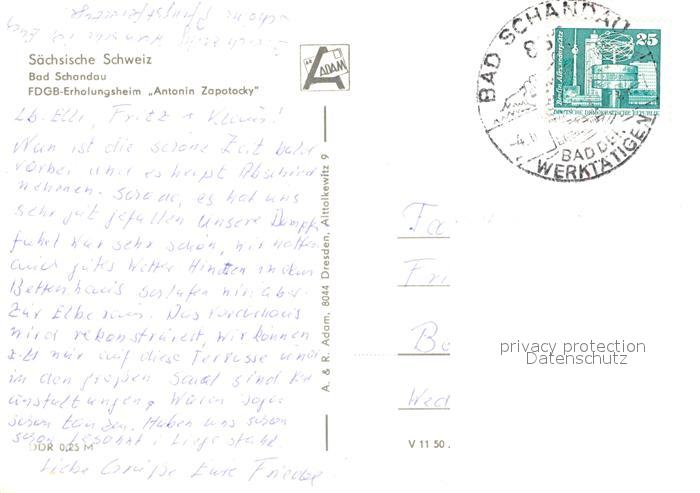 Sächsische Schweiz
Bad Schandau
FDGB-Erholungsheim „Antonin Zapotocky"
ADAM
Lb. Elli, Fritz + Klaus!
Nun ist die schöne Zeit bald
vorbei und es heißt Abschied
nehmen. Schade, es hat uns
sehr gut gefallen Unsere Dampf-
fahrt war sehr schön, wir hatten
auch gutes Wetter Hinten in dem
Bettenhaus schlafen wir über
zur Elbe raus. Das Vorderhaus
wird rekonstruiert, wir können
nur auf diese Terrasse und
im den großen Saal sind Ver
anstaltungen, Waren sogar
schon tanzen. Haben uns schon
schön gesonnt i. Liegestuhl.
DDR 0,25 M
Liebe Grüße Eure Friedel
A. & R. Adam, 8044 Dresden, Alttolkewitz 9
V 11 50
BAD SCHANDAU
BAD DER
WERKTÄTIGEN
25
Berlin, Alexanderplatz
DEUTSCHE DEMOKRATISCHE REPUBLIK
Fa
Fri
Be
Wed
privacy protection
Datenschutz